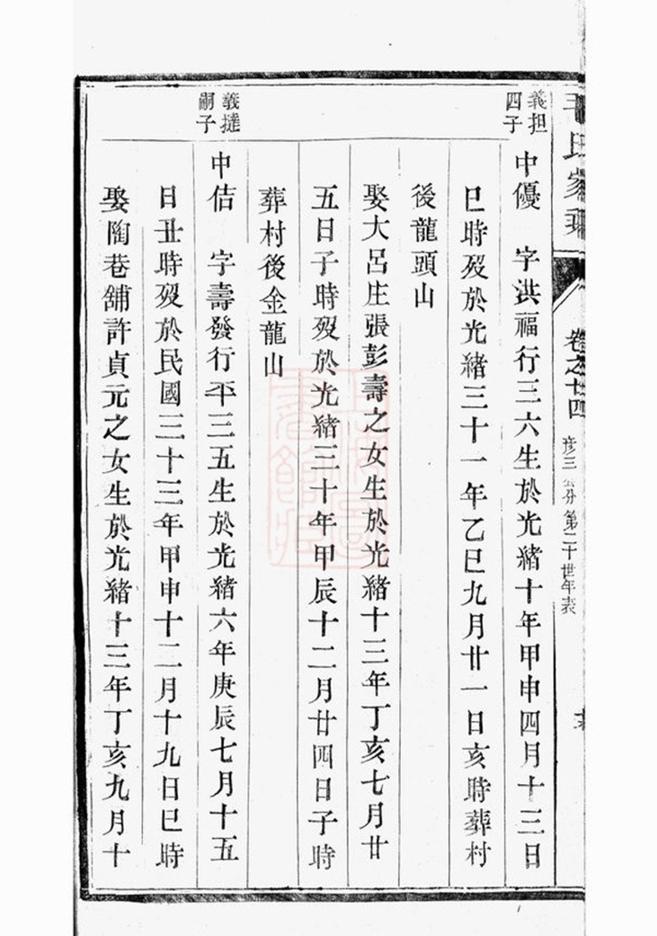 氏家乘
卷之廿四
第二十世年表
義担
四子
中優 字洪福行三六生於光緒十年甲申四月十三日
巳時歿於光緒三十一年乙巳九月廿一日亥時葬村
後龍頭山
娶大呂庄張彭壽之女生於光緒十三年丁亥七月廿
五日子時歿於光緒三十年甲辰十二月廿四日子時
葬村後金龍山
義撻
嗣子
中佶 字壽發行平三五生於光緒六年庚辰七月十五
日丑時歿於民國三十三年甲申十二月十九日巳時
娶陶巷舖許貞元之女生於光緒十三年丁亥九月十